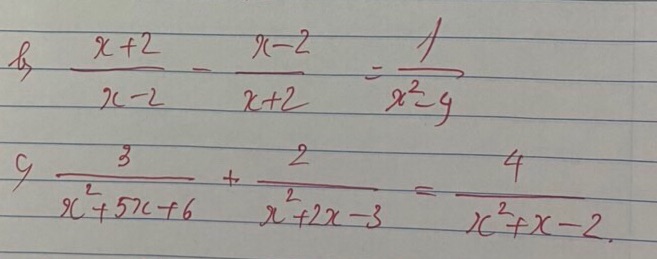 b, (x+2)/(x-2) - (x-2)/(x+2) = 1/(x²-4)
c, 3/(x²+5x+6) + 2/(x²+2x-3) = 4/(x²+x-2).